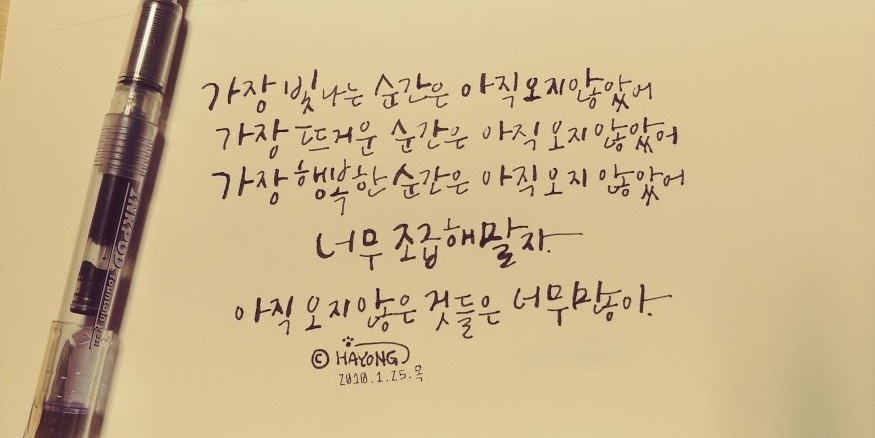 가장 빛나는 순간은 아직 오지 않았어
가장 뜨거운 순간은 아직 오지 않았어
가장 행복한 순간은 아직 오지 않았어
너무 조급해 말자.
아직 오지 않은 것들은 너무 많아.
© HAYONG
2018.1.25.목
INKPOD fountain pen